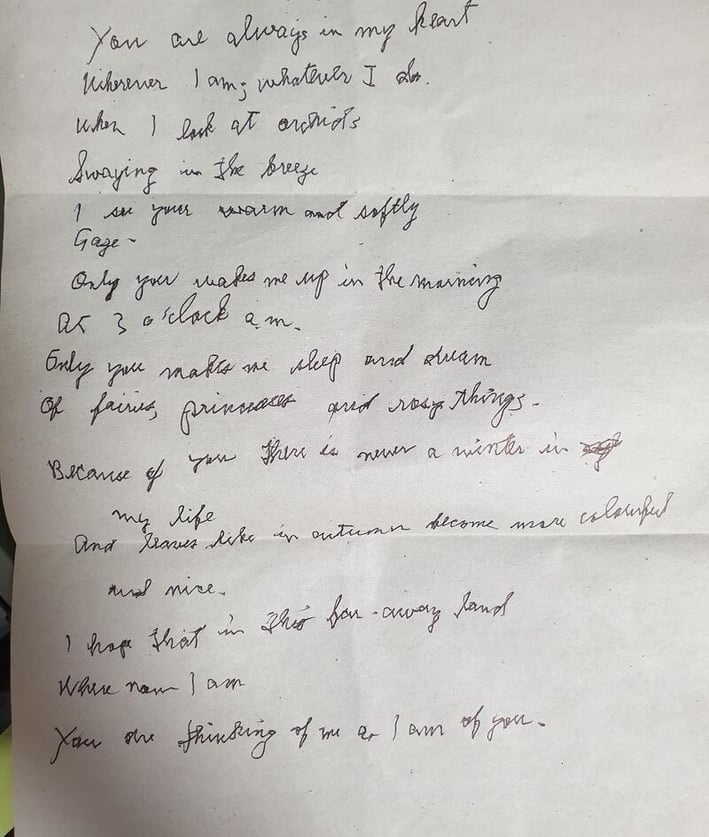 You are always in my heart
Wherever I am; whatever I do.
When I look at orchids
Swaying in the breeze
I see your warm and softly
Gaze-
Only you wakes me up in the morning
At 3 o'clock a.m.
Only you makes me sleep and dream
Of fairies, princesses and rosy things-
Because of you there is never a winter in
my life
And leaves like in autumn become more colourful
and nice.
I hope that in this far-away land
Where now I am
You are thinking of me as I am of you.